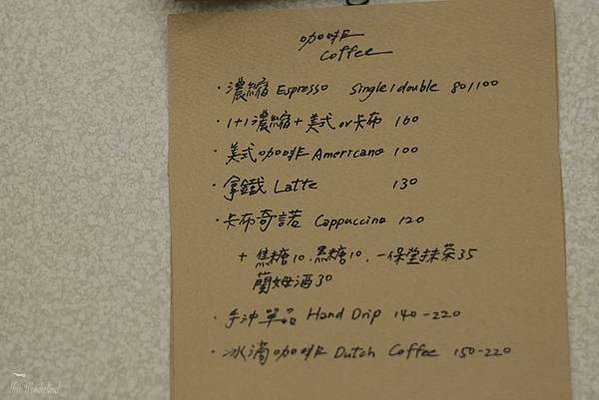 咖啡
Coffee
·濃縮 Espresso Single/double 80/100
·1+1濃縮+美式or卡布 160
·美式咖啡 Americano 100
·拿鐵 Latte 130
·卡布奇諾 Cappuccino 120
+ 焦糖10.黑糖10.一保堂抹茶35
蘭姆酒30
·手沖單品 Hand Drip 140-220
·冰滴咖啡 Dutch Coffee 150-220